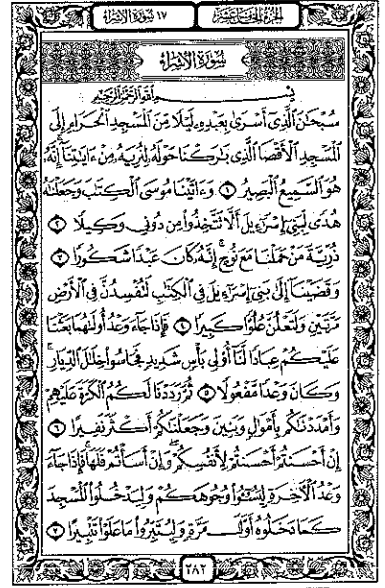 الجزء الخامس عشر
١٧ سورة الإسراء
سُورَةُ الإِسْرَاءِ
بِسْمِ اللَّهِ الرَّحْمَٰنِ الرَّحِيمِ
سُبْحَٰنَ ٱلَّذِىٓ أَسْرَىٰ بِعَبْدِهِۦ لَيْلًا مِّنَ ٱلْمَسْجِدِ ٱلْحَرَامِ إِلَى
ٱلْمَسْجِدِ ٱلْأَقْصَا ٱلَّذِى بَٰرَكْنَا حَوْلَهُۥ لِنُرِيَهُۥ مِنْ ءَايَٰتِنَآ إِنَّهُۥ
هُوَ ٱلسَّمِيعُ ٱلْبَصِيرُ ١ وَءَاتَيْنَا مُوسَى ٱلْكِتَٰبَ وَجَعَلْنَٰهُ
هُدًى لِّبَنِىٓ إِسْرَٰٓءِيلَ أَلَّا تَتَّخِذُوا۟ مِن دُونِى وَكِيلًا ٢
ذُرِّيَّةَ مَنْ حَمَلْنَا مَعَ نُوحٍ إِنَّهُۥ كَانَ عَبْدًا شَكُورًا ٣
وَقَضَيْنَآ إِلَىٰ بَنِىٓ إِسْرَٰٓءِيلَ فِى ٱلْكِتَٰبِ لَتُفْسِدُنَّ فِى ٱلْأَرْضِ
مَرَّتَيْنِ وَلَتَعْلُنَّ عُلُوًّا كَبِيرًا ٤ فَإِذَا جَآءَ وَعْدُ أُولَىٰهُمَا بَعَثْنَا
عَلَيْكُمْ عِبَادًا لَّنَآ أُو۟لِى بَأْسٍ شَدِيدٍ فَجَاسُوا۟ خِلَٰلَ ٱلدِّيَارِ
وَكَانَ وَعْدًا مَّفْعُولًا ٥ ثُمَّ رَدَدْنَا لَكُمُ ٱلْكَرَّةَ عَلَيْهِمْ
وَأَمْدَدْنَٰكُم بِأَمْوَٰلٍ وَبَنِينَ وَجَعَلْنَٰكُمْ أَكْثَرَ نَفِيرًا ٦
إِنْ أَحْسَنتُمْ أَحْسَنتُمْ لِأَنفُسِكُمْ وَإِنْ أَسَأْتُمْ فَلَهَا فَإِذَا جَآءَ
وَعْدُ ٱلْءَاخِرَةِ لِيَسُۥٓـُٔوا۟ وُجُوهَكُمْ وَلِيَدْخُلُوا۟ ٱلْمَسْجِدَ
كَمَا دَخَلُوهُ أَوَّلَ مَرَّةٍ وَلِيُتَبِّرُوا۟ مَا عَلَوْا۟ تَتْبِيرًا ٧
٢٨٢